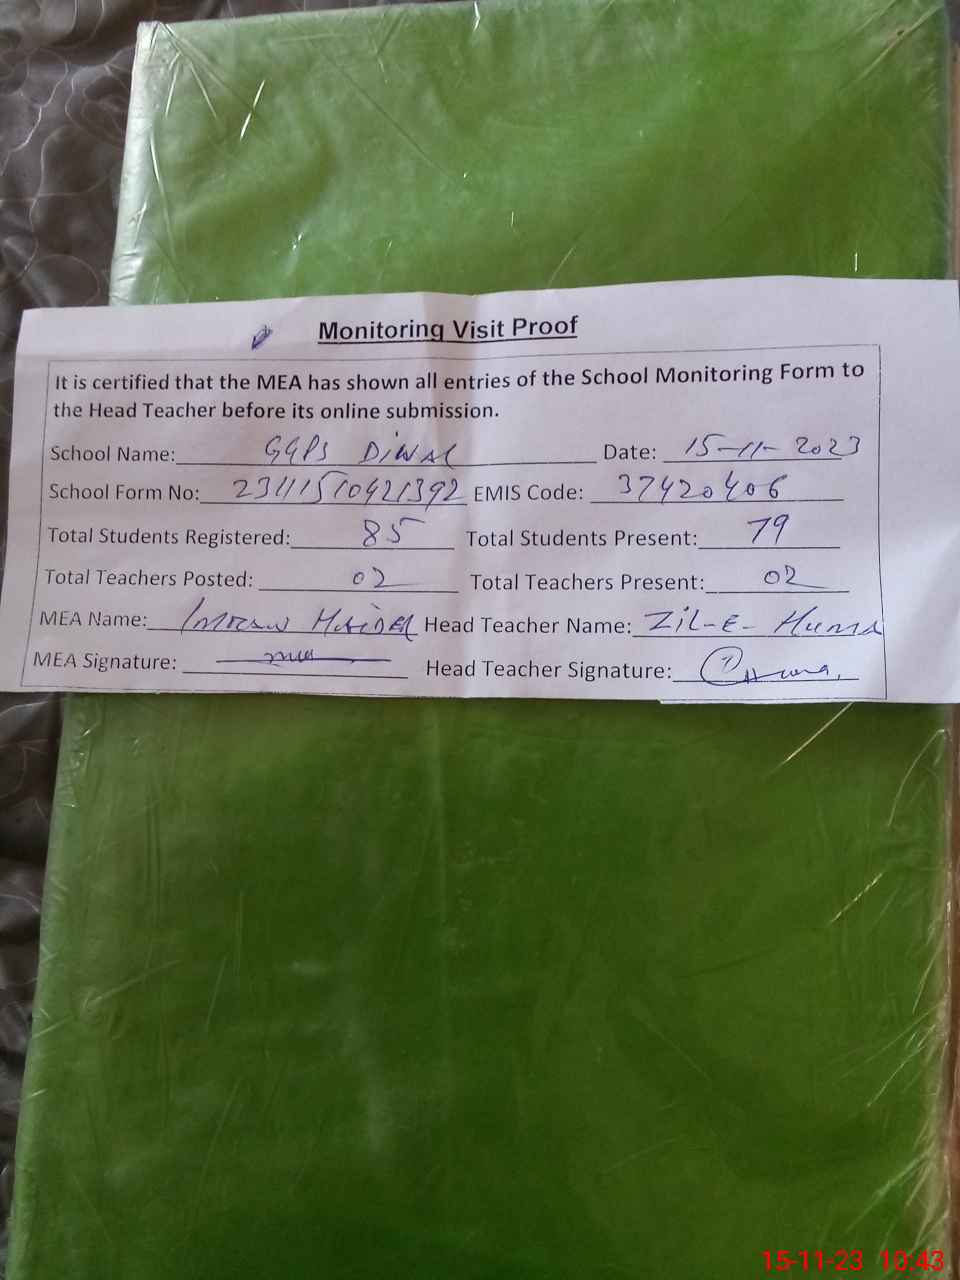 Monitoring Visit Proof
It is certified that the MEA has shown all entries of the School Monitoring Form to
the Head Teacher before its online submission.
School Name: GGPS DIWAL Date: 15-11-2023
School Form No: 2311510421392 EMIS Code: 37420406
Total Students Registered: 85 Total Students Present: 79
Total Teachers Posted: 02 Total Teachers Present: 02
MEA Name: Imran Haider Head Teacher Name: Zil-E-Huma
MEA Signature: Head Teacher Signature: Huma
15-11-23 10:43